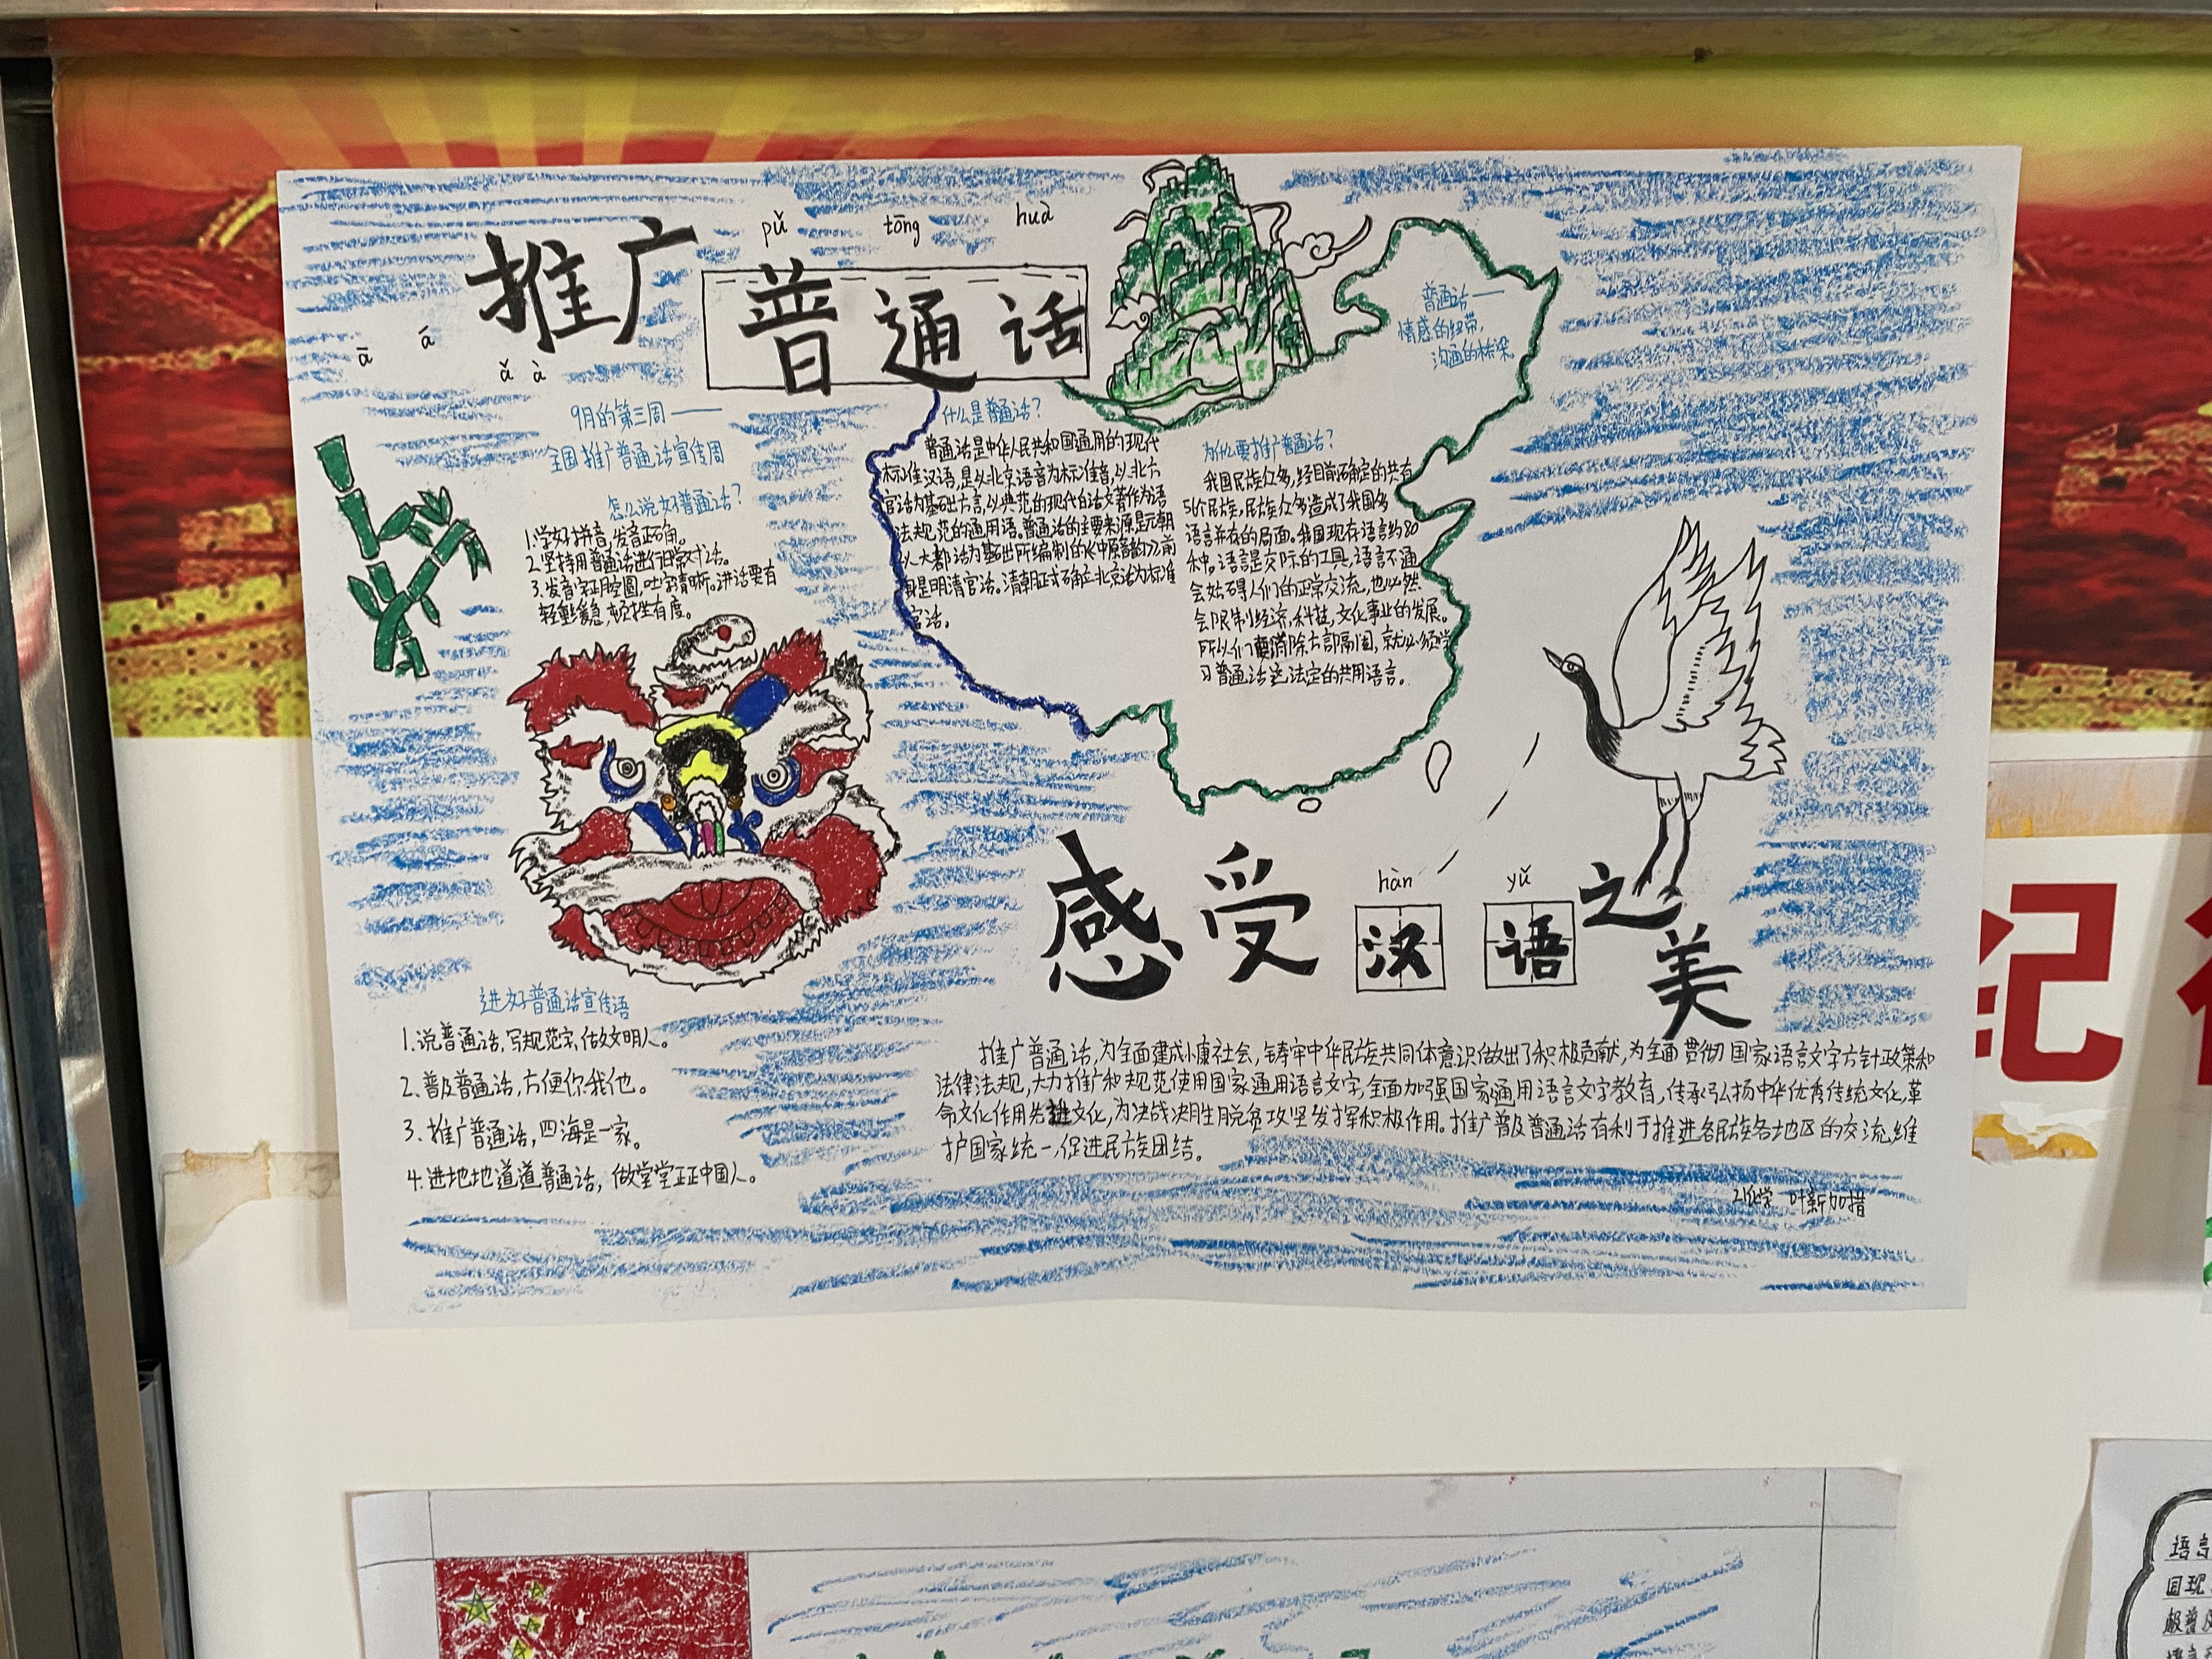 pǔ tōng huà
推广普通话
ā á ǎ à
普通话——
情感的纽带,
沟通的桥梁。
9月的第三周——
全国推广普通话宣传周
怎么说好普通话?
1.学好拼音,发音正确。
2.坚持用普通话进行日常对话。
3.发音字正腔圆,吐字清晰。讲话要有
轻重缓急,顿挫有度。
什么是普通话?
普通话是中华人民共和国通用的现代
标准汉语,是以北京语音为标准音,以北方
官话为基础方言,以典范的现代白话文著作为语
法规范的通用语。普通话的主要来源是元朝
以大都话为基础所编制的《中原音韵》,前
身是明清官话。清朝正式确立北京话为标准
官话。
为什么要推广普通话?
我国民族众多,经目前确定的共有
56个民族,民族众多造成了我国多
语言并存的局面。我国现存语言约80
种。语言是交际的工具,语言不通
会妨碍人们的正常交流,也必然
会限制经济,科技,文化事业的发展。
所以人们要消除方部隔阂,就必须学
习普通话这法定的共用语言。
hàn yǔ
感受汉语之美
进好普通话宣传语
1.说普通话,写规范字,做文明人。
2.普及普通话,方便你我他。
3.推广普通话,四海是一家。
4.进地地道道普通话,做堂堂正正中国人。
推广普通话,为全面建成小康社会,铸牢中华民族共同体意识做出了积极贡献,为全面贯彻国家语言文字方针政策和
法律法规,大力推广和规范使用国家通用语言文字,全面加强国家通用语言文字教育,传承弘扬中华优秀传统文化,革
命文化作用先进文化,为决战决胜脱贫攻坚发挥积极作用。推广普及普通话有利于推进各民族各地区的交流,维
护国家统一,促进民族团结。
21化学 叶新加措
纪
语言
国现
极普及